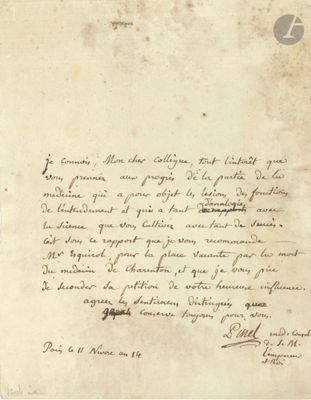 je connois, Mon cher Collègue, tout l'intérêt que
vous prennés aux progrès de la partie de la
medecine qui a pour objet les lesions des fonctions
de l'entendement et qui a tant d'analogie avec
la science que vous cultivés avec tant de succès.
C'est sous ce rapport que je vous recommande
Mr Esquirol, pour la place vacante par la mort
du medecin de Charenton, et que je vous prie
de seconder sa petition de votre heureuse influence.
agréés les sentimens distingués que
conserve toujours pour vous.
Pinel med. Consul
d. S. M.
l'empereur
et Roi
Paris le 11 Nivose an 14